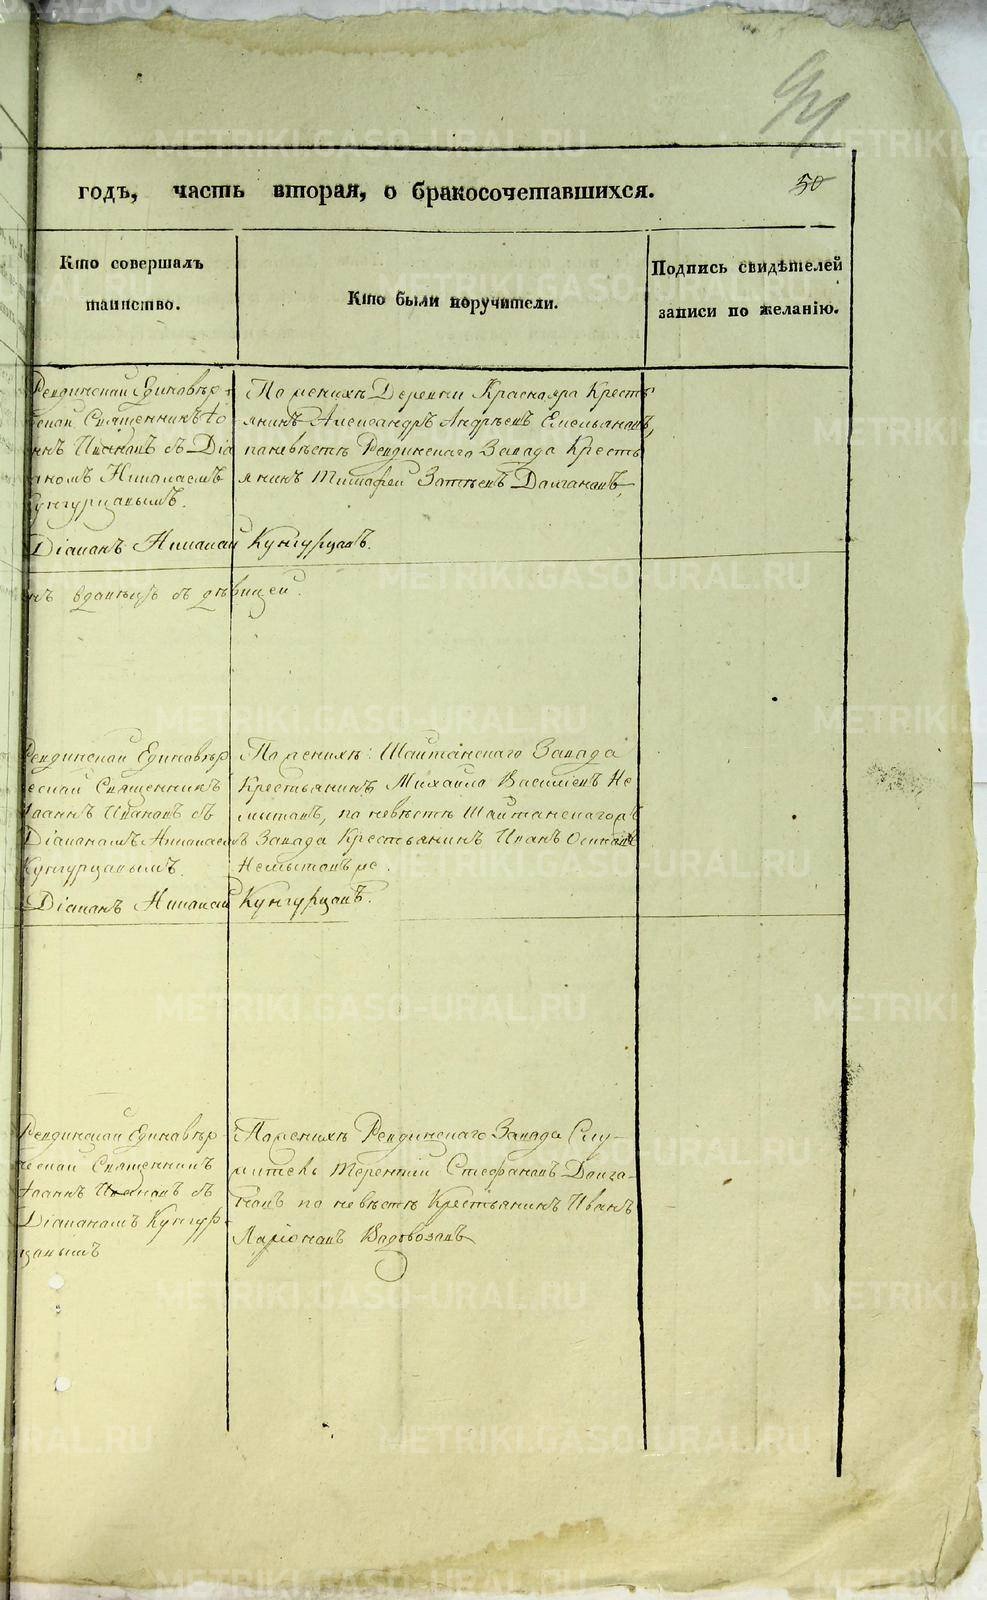 50
годъ, часть вторая, о бракосочетавшихся.
Кто совершалъ
таинство.
Кто были поручители.
Подпись свидѣтелей
записи по желанію.
Ревдинский Единовѣр
ческий Священникъ Іо
аннъ Ивановъ съ Діа
кономъ Николаемъ
Кунгурцовымъ.
По женихѣ Деревни Краснояра Кресть
янинъ Александръ Андрѣевъ Емельяновъ,
по невѣстѣ Ревдинскаго Завода Кресть
янинъ Тимофей Долгановъ,
Діаконъ Николай Кунгурцовъ.
съ дѣвицей.
Ревдинской Единовѣр
ческий Священникъ
Іоаннъ Ивановъ съ
Діакономъ Николаемъ
Кунгурцовымъ.
По женихѣ: Шайтанскаго Завода
Крестьянинъ Михайло Васильевъ Не
мытовъ, по невѣстѣ Шайтанскагожъ
Завода Крестьянинъ Иванъ Осиповъ
Немытовъ же.
Діаконъ Николай Кунгурцовъ.
Ревдинской Единовѣр
ческой Священникъ
Іоаннъ Ивановъ съ
Діакономъ Кунгур
цовымъ
По женихѣ Ревдинскаго Завода Слу-
житель Терентий Стефановъ Долга-
новъ по невѣстѣ Крестьянинъ Иванъ
Ларіоновъ Водовозовъ
METRIKI.GASO-URAL.RU